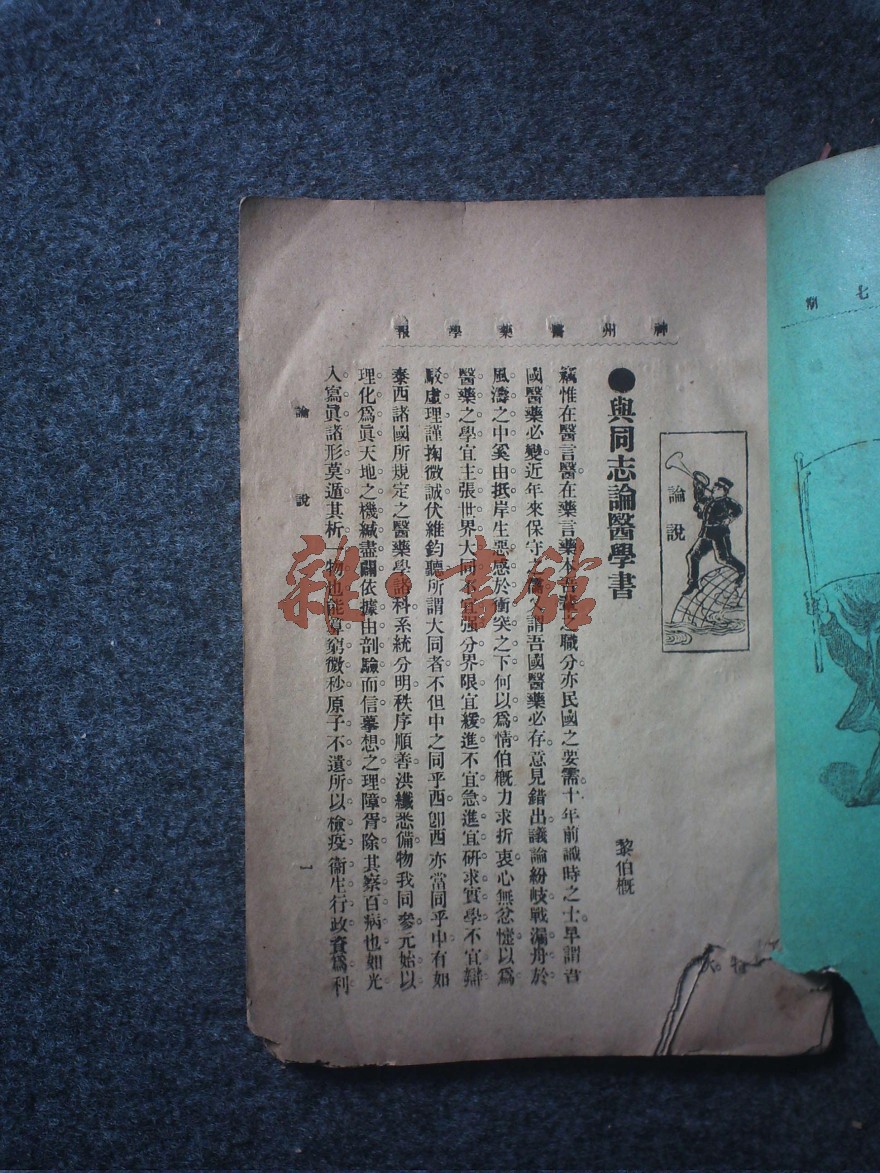 神州醫藥學報
論說
●與同志論醫學書
黎伯概
竊惟在醫言醫在藥言藥本吾輩之職分亦民國之要需十年前識時之士早謂吾
國醫藥必變近年來保守之儒又謂吾國醫藥必存意見錯出議論紛岐戰漏舟於
風濤之中奚由抵岸生惡感於衝突之下何以爲情伯概力求折衷心無忿懥以爲
醫藥之學宜主張世界大同不宜强分界限宜緩進不宜急進宜研求實學不宜辯
駁虛理謹掬微誠伏維鈞聽所謂大同者不但中之同乎西卽西亦當同乎中有如
泰西諸國所規定之醫藥學諸科系統分明秩序順善洪纖悉備物我同參元始以
理化爲眞天地之機緘盡闢依據由剖驗而信摹想之理障胥除其察百病也如光
入寫眞諸形莫遁其析一物也能算窮微秒原子不遺所以檢疫衞生行政資爲利
論說
一
七期
雜·書館